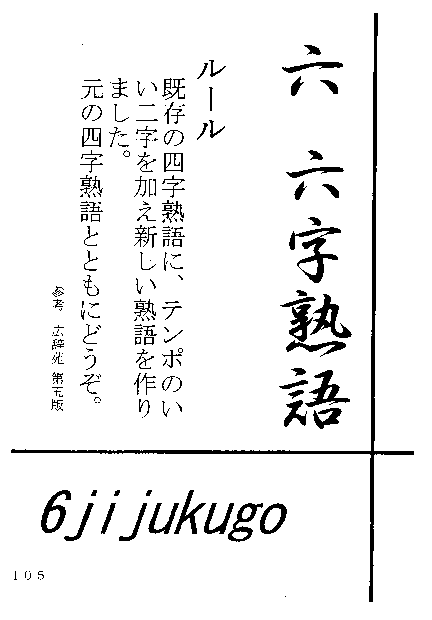 六 六字熟語
ルール
既存の四字熟語に、テンポのい
い二字を加え新しい熟語を作り
ました。
元の四字熟語とともにどうぞ。
参考 広辞苑 第五版
6jijukugo
105